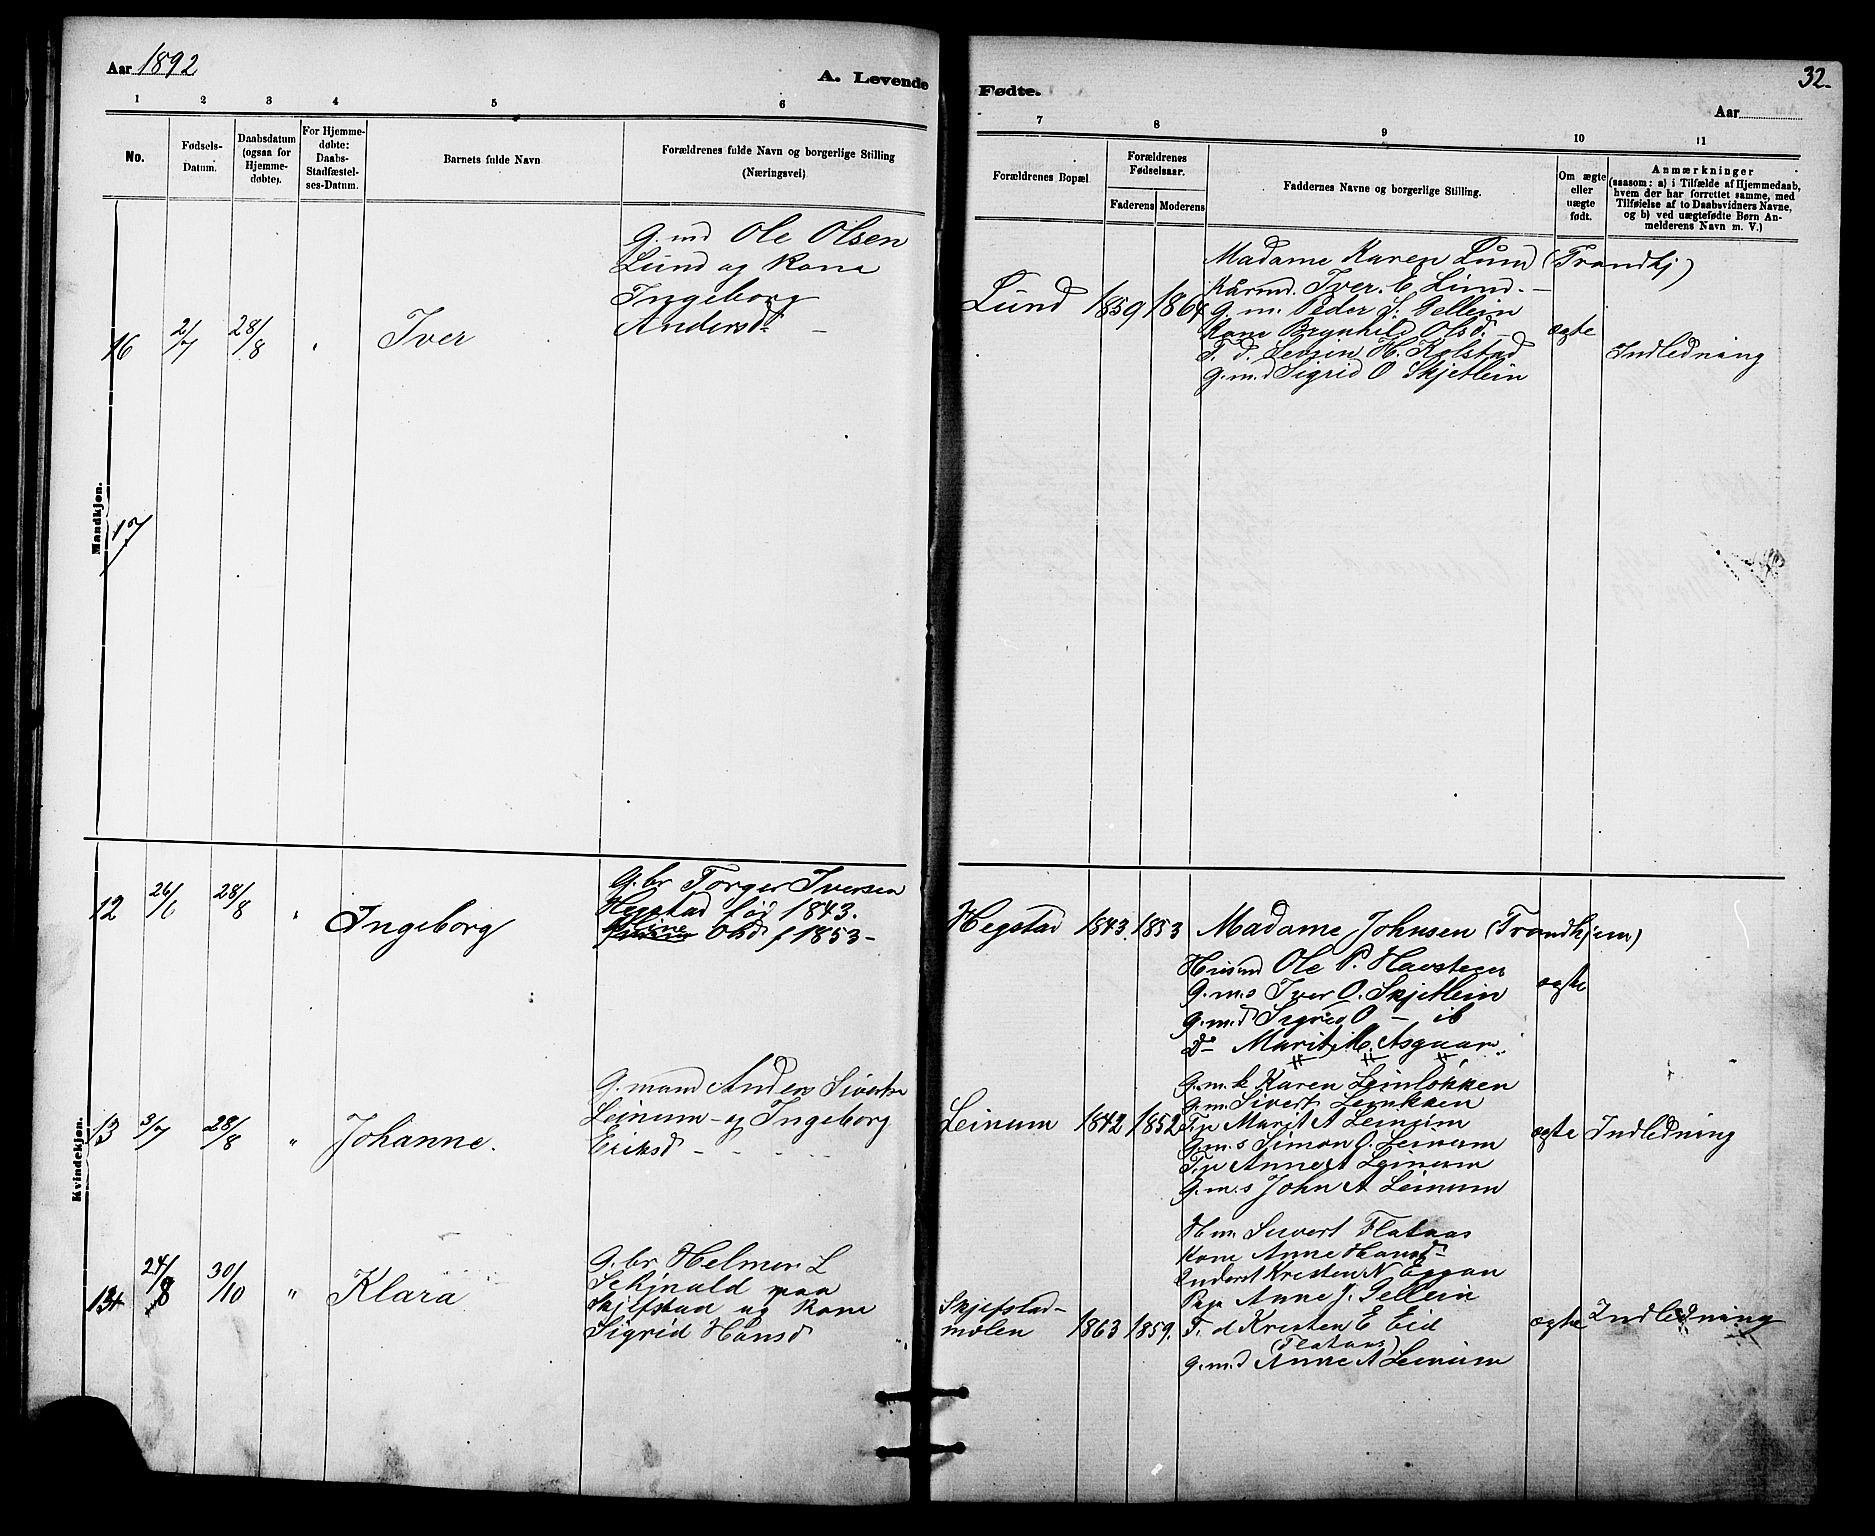 Aar 1892
A. Levende
Fødte.
32.
Aar
1 2 3 4 5 6
7 8 9 10 11
No.
Fødsels-
Datum.
Daabsdatum
(ogsaa for
Hjemme-
døbte).
For Hjemme-
døbte:
Daabs-
Stadfæstel-
ses-Datum.
Barnets fulde Navn
Forældrenes fulde Navn og borgerlige Stilling
(Næringsvei)
Forældrenes Bopæl.
Forældrenes
Fødselsaar.
Faderens Moderens
Faddernes Navne og borgerlige Stilling.
Om ægte
eller
uægte
født.
Anmærkninger
(saasom: a) i Tilfælde af Hjemmedaab,
hvem der har forrettet samme, med
Tilføielse af to Daabsvidners Navne,
og b) ved uægtefødte Børn An-
melderens Navn m. V.)
Mandkjøn.
16 2/7 28/8 Iver
G.md Ole Olsen
Lund og kone
Ingeborg
Andersd.
Lund 1859 1864
Madame Karen Lund (Trondhj)
Kårmd. Iver E Lund.
G. m. Peder S. Gellein
Kone Brynhild Olsd.
T. d. H. Kolstad
G.m.d Sigrid O Skjetlein
ægte
Indledning
17
Kvindekjøn.
12 26/6 28/8 " Ingeborg
G.br Torger Iversen
Hegstad fød 1843.
Olsd f 1853-
Hegstad 1843. 1853
Madame Johnsen (Trondhjem)
Ole P. Havsteen
G.m.s Iver O. Skjetlein
G.m.d Sigrid O — ib
Do Marit M. Asgaar
ægte
13 3/7 28/8 " Johanne.
G.mand Anders Sivertsn
Leinum - og Ingeborg
Eriksd
Leinum 1842 1852
G.m.k Karen Leinløkken
G.m. Sivert Leinkken
T.p Marit A Leinum
G.m.s Simon O. Leinum
T.p Anne A Leinum
G.m.s John A Leinum
ægte Indledning
14 24/8 30/10 " Klara
G.br Helmer L
paa
Skjefstad og kone
Sigrid Hansd
Skjefstad-
mølen 1863 1859.
Hm Sivert Flataas
Kone Anne Hansd
Kristen N Eggan
Pige Anne J. Gellein
T. d Kristen E Eid
(Flataas)
G.m.d Anne A Leinum
ægte Indledning